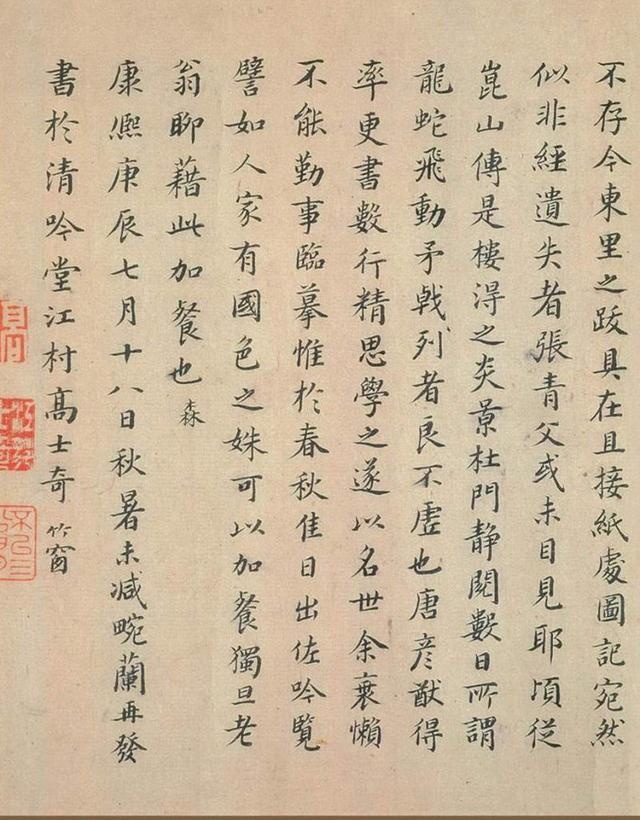 不存今東里之跋具在且接紙處圖記宛然
似非經遺失者張青父或未目見耶頃従
崑山傳是樓淂之炎景杜門静閱數日所謂
龍蛇飛動矛戟列者良不虛也唐彥猷得
率更書數行精思學之遂以名世余衰懶
不能勤事臨摹惟於春秋佳日出佐吟覧
譬如人家有國色之姝可以加餐獨旦老
翁聊藉此加餐也森
康熈庚辰七月十八日秋暑未減畹蘭再發
書於清吟堂江村髙士奇竹窗